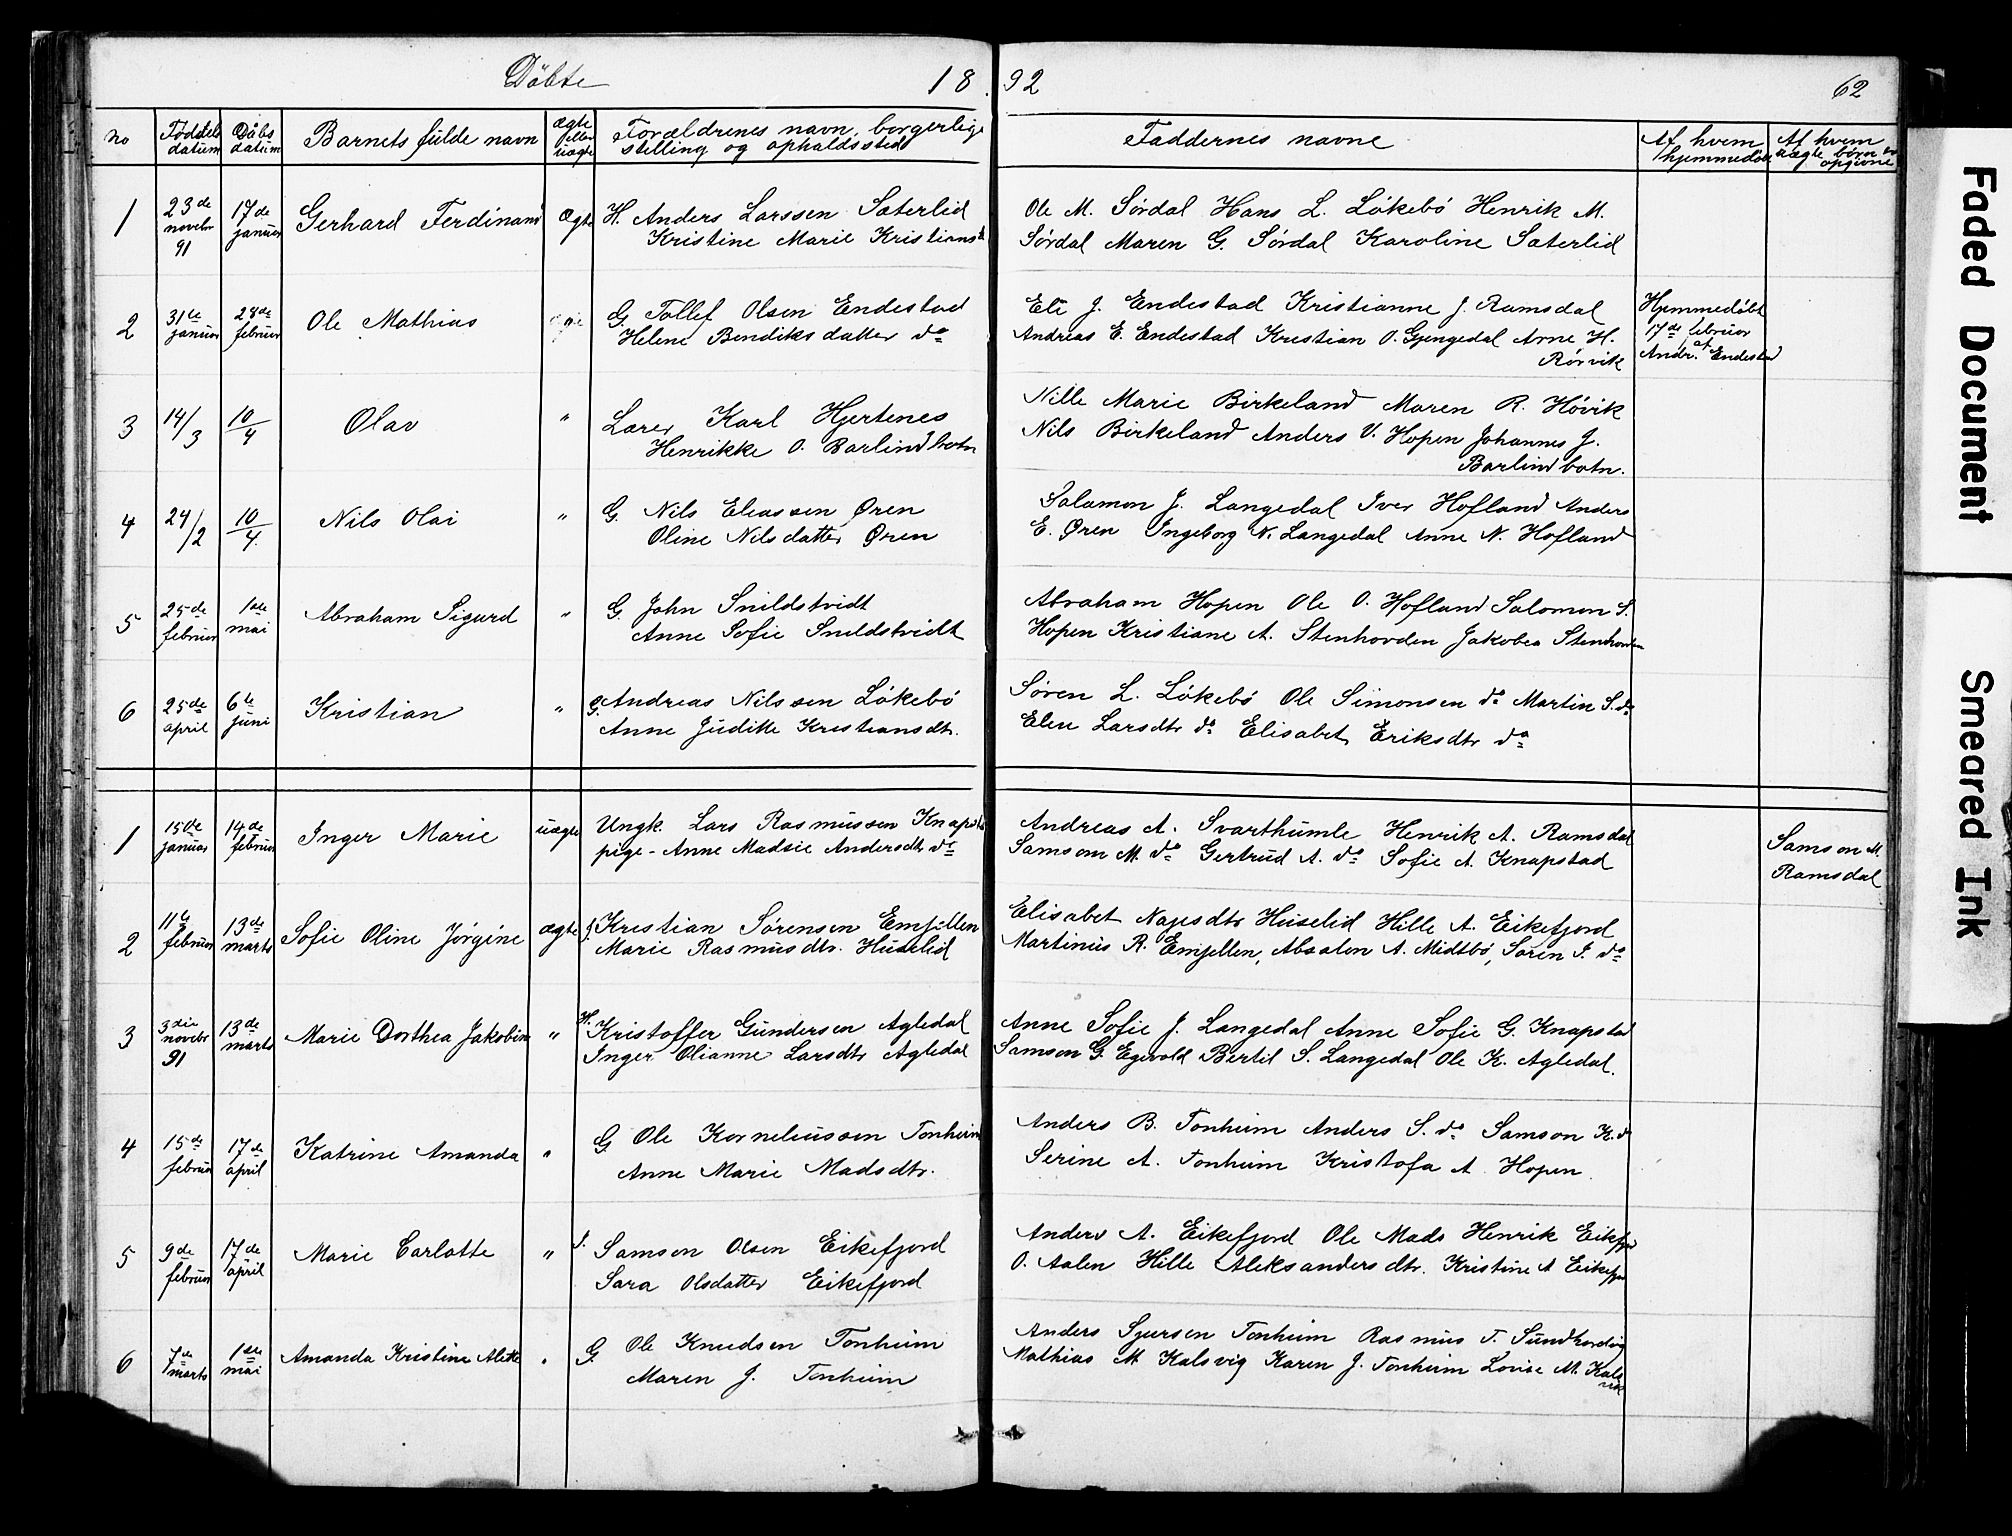 Döbte 18 92 62
no Födsels datum Dåbs datum Barnets fulde navn ægte eller uægte Forældrenes navn, borgerlige stilling og opholdssted Faddernes navne Af hvem hjemmedöbt Af hvem uægte börn opgivne
1 23de novebr 91 17de januar Gerhard Ferdinand Ægte H. Anders Larssen Sæterlid Ole M. Sördal Hans L. Lökebö Henrik M.
Kristine Marie Kristiansdt Sördal Maren G. Sördal Karoline Sæterlid
2 31te januar 28de februar Ole Mathias G Tollef Olsen Endestad Eli J. Endestad Kristianne J. Ramsdal Hjemmedöbt
Helene Bendiksdatter do Andreas E. Endestad Kristian O. Gjengedal Arne H. 17de februar af
Rørvik Andr. Endestad
3 14/3 10/4 Olav " Lærer Karl Hjertenes Nille Marie Birkeland Maren R. Hövik
Henrikke O. Barlindbotn Nils Birkeland Anders V. Hopen Johannes J.
Barlindbotn.
4 24/2 10/4 Nils Olai " G. Nils Eliassen Øren Salamon J. Langedal Iver Hofland Anders
Oline Nilsdatter Øren E. Øren Ingeborg N. Langedal Anne N. Hofland
5 25de februar 1ste mai Abraham Sigurd " G. John Snildstvidt Abraham Hopen Ole O. Hofland Salomon S.
Anne Sofie Snildstvidt Hopen Kristiane A. Stenhovden Jakobea Stenhovden
6 25de april 6te juni Kristian " G. Andreas Nilssen Lökebö Sören L. Lökebö Ole Simonsen do Martin S. do
Anne Juditte Kristiansdtr. Elen Larsdtr do Elisabet Eriksdtr do
1 15de januar 14de februar Inger Marie uægte Ungk. Lars Rasmussen Knapstad Andreas A. Svarthumle Henrik A. Ramsdal Samson M.
pige - Anne Madsie Andersdtr do Samson M. do Gertrud A. do Sofie A. Knapstad Ramsdal
2 11te februar 13de marts Sofie Oline Jörgine ægte Kristian Sörensen Emfjellen Elisabet Nagesdtr Huselid Hille A. Eikefjord
Marie Rasmusdtr. Huselid Martinus R. Emfjellen, Absalon A. Midtbö, Sören J. do
3 3die novebr 91 13de marts Marie Dorthea Jakobine " H. Kristoffer Gundersen Agledal Anne Sofie J. Langedal Anne Sofie G. Knapstad
Inger Olianne Larsdtr Agledal Samson G. Egevold Bertil S. Langedal Ole K. Agledal.
4 15de februar 17de april Katrine Amanda " G Ole Korneliussen Tonheim Anders B. Tonheim Anders S. do Samson K. do
Anne Marie Madsdtr. Serine A. Tonheim Kristofa A. Hopen
5 9de februar 17de april Marie Carlotte " Samson Olsen Eikefjord Anders A. Eikefjord Ole Mads Henrik Eikefjord
Sara Olsdatter Eikefjord O. Aalen Hille Aleksandersdtr. Kristine A Eikefjord
6 7de marts 1ste mai Amanda Kristine Alette " G. Ole Knudsen Tonheim Anders Sjursen Tonheim Rasmus T. Sundhordvig
Maren J. Tonheim Mathias M Kalsvig Karen J. Tonheim Lovise M. Kalsvik
Faded Document
Smeared Ink